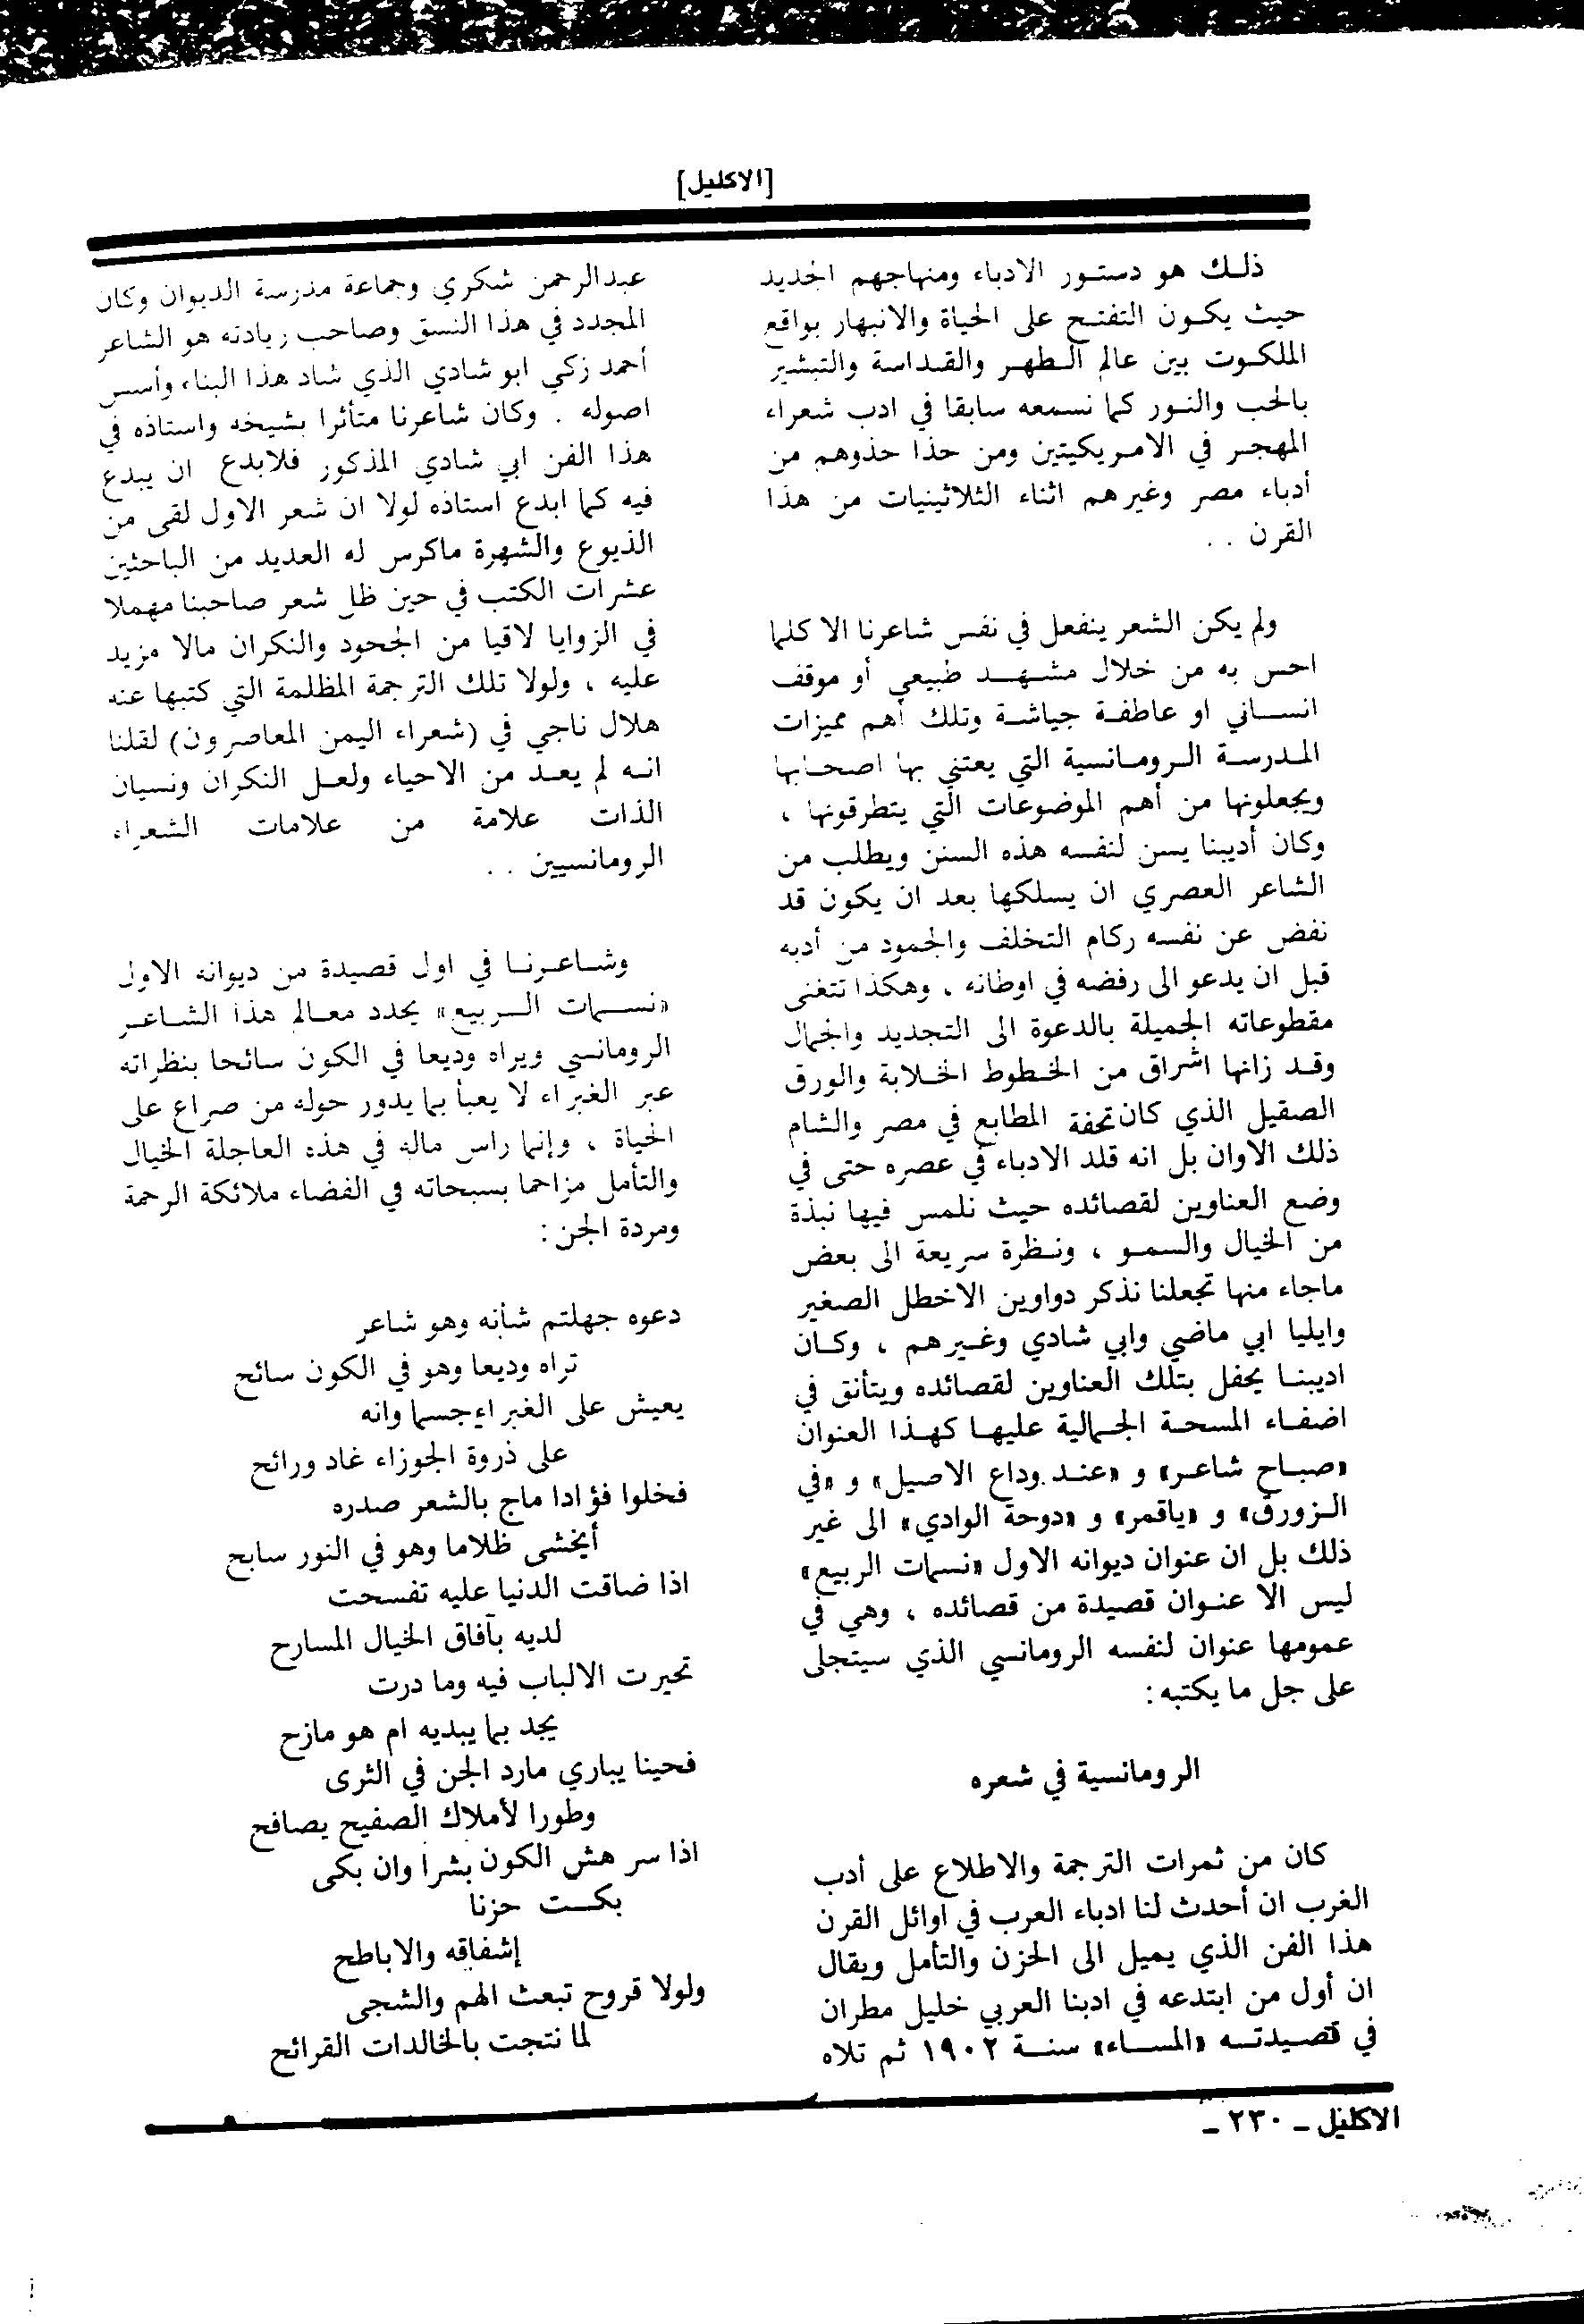 [الاكليل]
ذلك هو دستور الادباء ومنهاجهم الجديد
حيث يكون التفتح على الحياة والانبهار بواقع
الملكوت بين عالم الطهر والقداسة والتبشير
بالحب والنور كما نسمعه سابقا في ادب شعراء
المهجر في الامريكيتين ومن حذا حذوهم من
أدباء مصر وغيرهم اثناء الثلاثينيات من هذا
القرن . .
ولم يكن الشعر ينفعل في نفس شاعرنا الا كلما
احس به من خلال مشهد طبيعي أو موقف
انساني او عاطفة جياشة وتلك أهم مميزات
المدرسة الرومانسية التي يعتني بها اصحابها
ويجعلونها من أهم الموضوعات التي يتطرقونها ،
وكان أديبنا يسن لنفسه هذه السنن ويطلب من
الشاعر العصري ان يسلكها بعد ان يكون قد
نفض عن نفسه ركام التخلف والجمود من أدبه
قبل ان يدعو الى رفضه في اوطانه ، وهكذا تتغنى
مقطوعاته الجميلة بالدعوة الى التجديد والجمال
وقد زانها اشراق من الخطوط الخلابة والورق
الصقيل الذي كان تحفة المطابع في مصر والشام
ذلك الاوان بل انه قلد الادباء في عصره حتى في
وضع العناوين لقصائده حيث نلمس فيها نبذة
من الخيال والسمو ، ونظرة سريعة الى بعض
ماجاء منها تجعلنا نذكر دواوين الاخطل الصغير
وايليا ابي ماضي وابي شادي وغيرهم ، وكان
اديبنا يحفل بتلك العناوين لقصائده ويتأنق في
اضفاء المسحة الجمالية عليها كهذا العنوان
«صباح شاعر» و «عند وداع الاصيل» و «في
الزورق» و «ياقمر» و «دوحة الوادي» الى غير
ذلك بل ان عنوان ديوانه الاول «نسمات الربيع»
ليس الا عنوان قصيدة من قصائده ، وهي في
عمومها عنوان لنفسه الرومانسي الذي سيتجلى
على جل ما يكتبه :
الرومانسية في شعره
كان من ثمرات الترجمة والاطلاع على أدب
الغرب ان أحدث لنا ادباء العرب في اوائل القرن
هذا الفن الذي يميل الى الحزن والتأمل ويقال
ان أول من ابتدعه في ادبنا العربي خليل مطران
في قصيدته «المساء» سنة ١٩٠٢ ثم تلاه
عبدالرحمن شكري وجماعة مدرسة الديوان وكان
المجدد في هذا النسق وصاحب ريادته هو الشاعر
أحمد زكي ابو شادي الذي شاد هذا البناء وأسس
اصوله . وكان شاعرنا متأثرا بشيخه واستاذه في
هذا الفن ابي شادي المذكور فلابدع ان يبدع
فيه كما ابدع استاذه لولا ان شعر الاول لقى من
الذيوع والشهرة ماكرس له العديد من الباحثين
عشرات الكتب في حين ظل شعر صاحبنا مهملا
في الزوايا لاقيا من الجحود والنكران مالا مزيد
عليه ، ولولا تلك الترجمة المظلمة التي كتبها عنه
هلال ناجي في (شعراء اليمن المعاصرون) لقلنا
انه لم يعد من الاحياء ولعل النكران ونسيان
الذات علامة من علامات الشعراء
الرومانسيين . .
وشاعرنا في اول قصيدة من ديوانه الاول
«نسمات الربيع» يحدد معالم هذا الشاعر
الرومانسي ويراه وديعا في الكون سائحا بنظراته
عبر الغبراء لا يعبأ بما يدور حوله من صراع على
الحياة ، وإنما راس ماله في هذه العاجلة الخيال
والتأمل مزاحما بسبحاته في الفضاء ملائكة الرحمة
ومردة الجن :
دعوه جهلتم شأنه وهو شاعر
تراه وديعا وهو في الكون سائح
يعيش على الغبراء جسما وانه
على ذروة الجوزاء غاد ورائح
فخلوا فؤادا ماج بالشعر صدره
أيخشى ظلاما وهو في النور سابح
اذا ضاقت الدنيا عليه تفسحت
لديه بآفاق الخيال المسارح
تحيرت الالباب فيه وما درت
يجد بما يبديه ام هو مازح
فحينا يباري مارد الجن في الثرى
وطورا لأملاك الصفيح يصافح
اذا سر هش الكون بشرا وان بكى
بكت حزنا
إشفاقه والاباطح
ولولا قروح تبعث الهم والشجى
لما نتجت بالخالدات القرائح
الاكليل ـ ٢٣٠ ـ